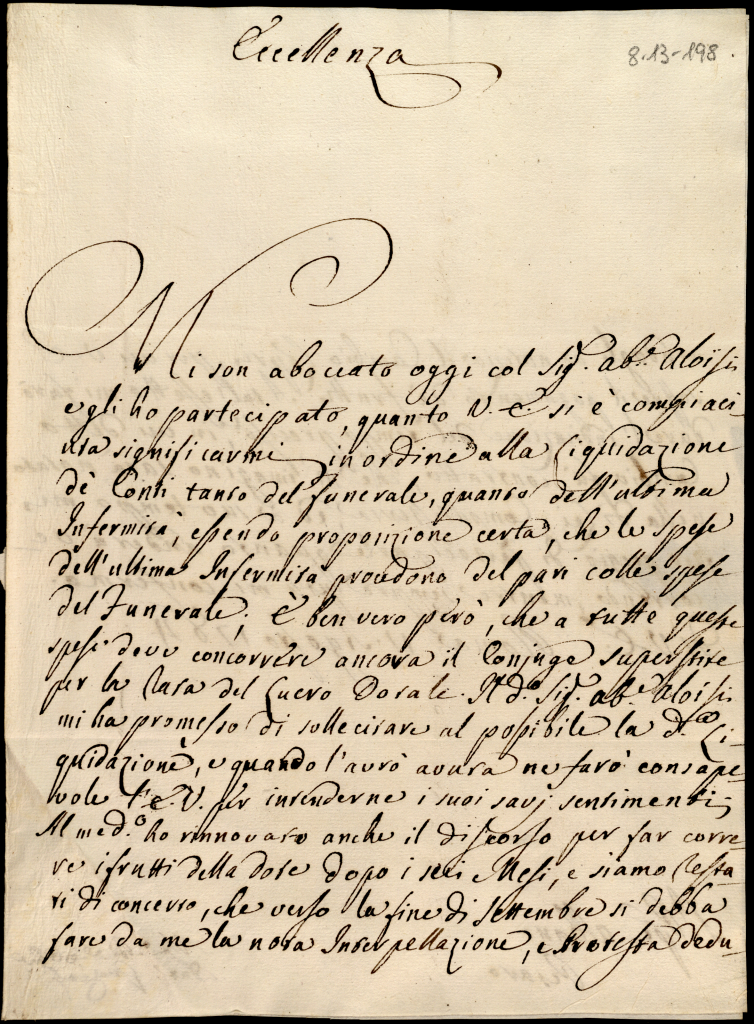 Eccellenza
8.13-198.
Mi son aboccato oggi col Sig.r ab.e Aloisi,
e gli ho partecipato, quanto V. E. si è compiaci
uta significarmi in ordine alla Liquidazione
de' Conti tanto del funerale, quanto dell'ultima
Infermità, essendo proporzione certa, che le spese
dell'ultima Infermità procedono del pari colle spese
del Funerale; È ben vero però, che a tutte queste
spese deve concorrere ancora il Conjuge superstite
per la rata del Lucro Dotale. Il d.o Sig.r ab.e Aloisi
mi ha promesso di sollecitare al possibile la d.a Li-
quidazione, e quando l'avrò avuta ne farò consape-
vole l'E. V. per intenderne i suoi savj sentimenti;
Al med.o ho rinnovato anche il discorso per far corre-
re i frutti della dote dopo i sei Mesi, e siamo resta-
ti di concerto, che verso la fine di Settembre si debba
fare da me la nota Interpellazione, e Protesta dedu-